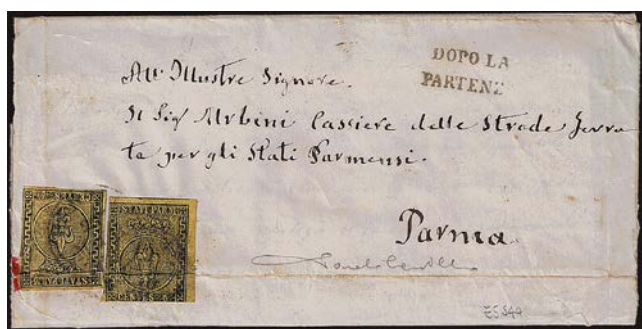 DOPO LA
PARTENZ
All' Illustre Signore.
Il Sig Urbini Cassiere delle Strade Ferra
te per gli Stati Parmensi.
Parma
STATI PARM
CENTES